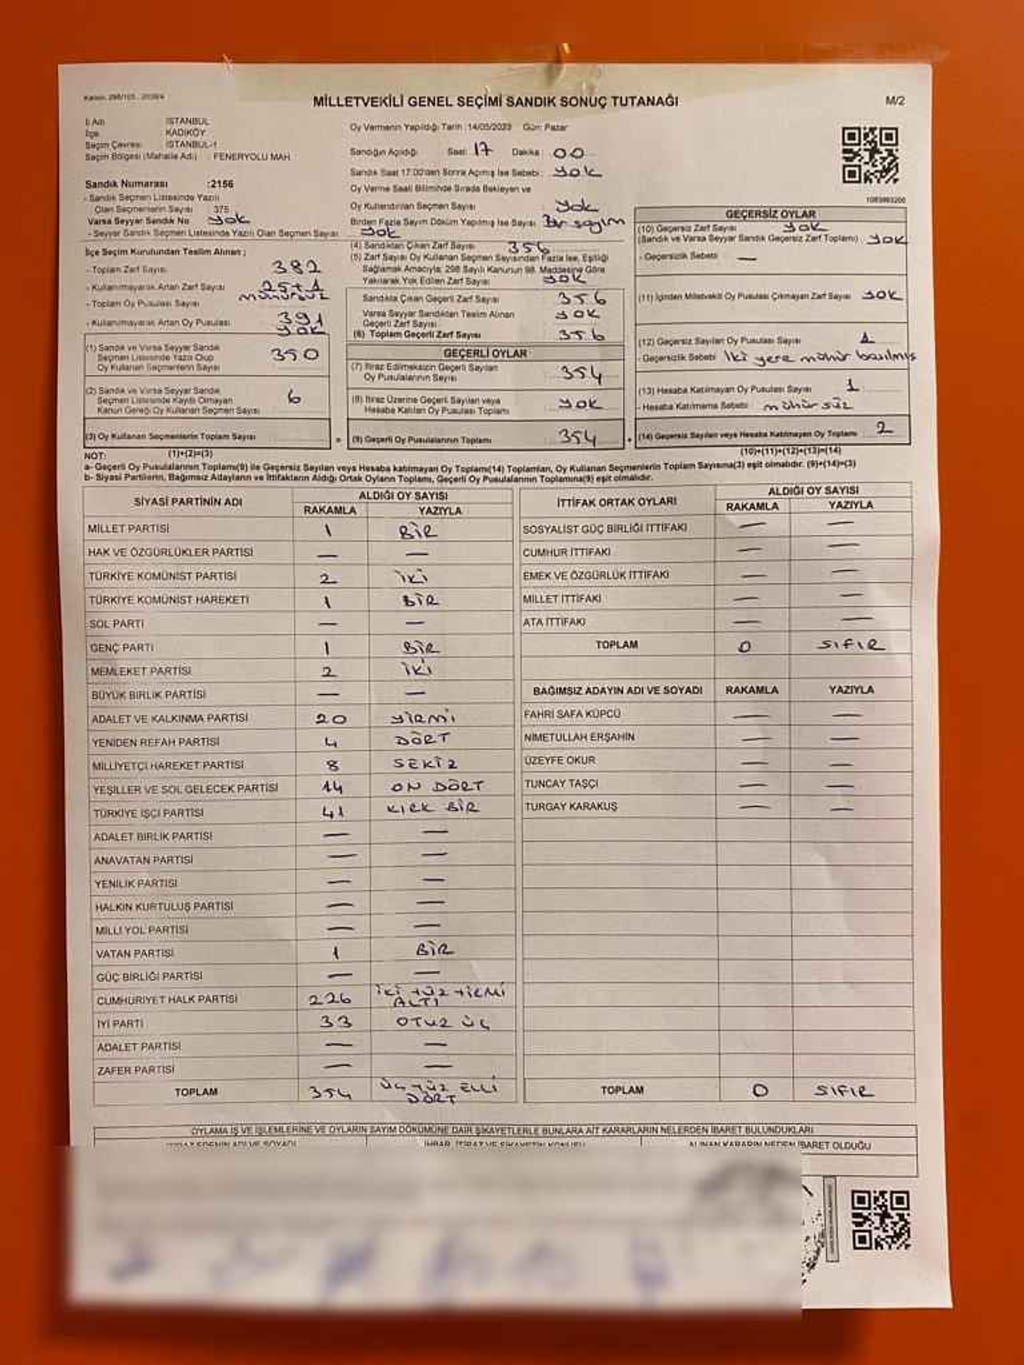 MİLLETVEKİLİ GENEL SEÇİMİ SANDIK SONUÇ TUTANAĞI
M/2
İl Adı İSTANBUL
İlçe KADIKÖY
Seçim Çevresi İSTANBUL-1
Seçim Bölgesi (Mahalle Adı) FENERYOLU MAH.
Sandık Numarası :2156
- Sandık Seçmen Listesinde Yazılı
Olan Seçmenlerin Sayısı 375
Varsa Seyyar Sandık No yok
- Seyyar Sandık Seçmen Listesinde Yazılı Olan Seçmen Sayısı yok
Oy Vermenin Yapıldığı Tarih :14/05/2023 Gün: Pazar
Sandığın Açıldığı Saat: 17 Dakika : 00
Sandık Saat 17.00'den Sonra Açılmış İse Sebebi : yok
Oy Verme Saati Bitiminde Sırada Bekleyen ve
Oy Kullandırılan Seçmen Sayısı yok
Birden Fazla Sayım Döküm Yapılmış İse Sayısı Bir sayım
1083983206
İlçe Seçim Kurulundan Teslim Alınan ;
- Toplam Zarf Sayısı 382
- Kullanılmayarak Artan Zarf Sayısı 25+1
mühürsüz
- Toplam Oy Pusulası Sayısı 391
- Kullanılmayarak Artan Oy Pusulası yok
(1) Sandık ve Varsa Seyyar Sandık
Seçmen Listesinde Yazılı Olup
Oy Kullanan Seçmenlerin Sayısı 350
(2) Sandık ve Varsa Seyyar Sandık
Seçmen Listesinde Kayıtlı Olmayan
Kanun Gereği Oy Kullanan Seçmen Sayısı 6
(3) Oy Kullanan Seçmenlerin Toplam Sayısı =
(4) Sandıktan Çıkan Zarf Sayısı 356
(5) Zarf Sayısı Oy Kullanan Seçmen Sayısından Fazla İse, Eşitliği
Sağlamak Amacıyla; 298 Sayılı Kanunun 98. Maddesine Göre
Yakılarak Yok Edilen Zarf Sayısı yok
Sandıkta Çıkan Geçerli Zarf Sayısı 356
Varsa Seyyar Sandıktan Teslim Alınan
Geçerli Zarf Sayısı yok
(6) Toplam Geçerli Zarf Sayısı 356
GEÇERLİ OYLAR
(7) İtiraz Edilmeksizin Geçerli Sayılan
Oy Pusulalarının Sayısı 354
(8) İtiraz Üzerine Geçerli Sayılan veya
Hesaba Katılan Oy Pusulası Toplamı yok
(9) Geçerli Oy Pusulalarının Toplamı 354 +
GEÇERSİZ OYLAR
(10) Geçersiz Zarf Sayısı yok
(Sandık ve Varsa Seyyar Sandık Geçersiz Zarf Toplamı) yok
- Geçersizlik Sebebi —
(11) İçinden Milletvekili Oy Pusulası Çıkmayan Zarf Sayısı yok
(12) Geçersiz Sayılan Oy Pusulası Sayısı 1
- Geçersizlik Sebebi İki yere mühür basılmış
(13) Hesaba Katılmayan Oy Pusulası Sayısı 1
- Hesaba Katılmama Sebebi mühürsüz
(14) Geçersiz Sayılan veya Hesaba Katılmayan Oy Toplamı 2
NOT: (1)+(2)=(3) (10)+(11)+(12)+(13)=(14)
a- Geçerli Oy Pusulalarının Toplamı(9) ile Geçersiz Sayılan veya Hesaba katılmayan Oy Toplamı(14) Toplamları, Oy Kullanan Seçmenlerin Toplam Sayısına(3) eşit olmalıdır. (9)+(14)=(3)
b- Siyasi Partilerin, Bağımsız Adayların ve İttifakların Aldığı Ortak Oyların Toplamı, Geçerli Oy Pusulalarının Toplamına(9) eşit olmalıdır.
SİYASİ PARTİNİN ADI ALDIĞI OY SAYISI
RAKAMLA YAZIYLA
MİLLET PARTİSİ 1 BİR
HAK VE ÖZGÜRLÜKLER PARTİSİ — —
TÜRKİYE KOMÜNİST PARTİSİ 2 İKİ
TÜRKİYE KOMÜNİST HAREKETİ 1 BİR
SOL PARTİ — —
GENÇ PARTİ 1 BİR
MEMLEKET PARTİSİ 2 İKİ
BÜYÜK BİRLİK PARTİSİ — —
ADALET VE KALKINMA PARTİSİ 20 YİRMİ
YENİDEN REFAH PARTİSİ 4 DÖRT
MİLLİYETÇİ HAREKET PARTİSİ 8 SEKİZ
YEŞİLLER VE SOL GELECEK PARTİSİ 14 ON DÖRT
TÜRKİYE İŞÇİ PARTİSİ 41 KIRK BİR
ADALET BİRLİK PARTİSİ — —
ANAVATAN PARTİSİ — —
YENİLİK PARTİSİ — —
HALKIN KURTULUŞ PARTİSİ — —
MİLLİ YOL PARTİSİ — —
VATAN PARTİSİ 1 BİR
GÜÇ BİRLİĞİ PARTİSİ — —
CUMHURİYET HALK PARTİSİ 226 İKİ YÜZ YİRMİ
ALTI
İYİ PARTİ 33 OTUZ ÜÇ
ADALET PARTİSİ — —
ZAFER PARTİSİ — —
TOPLAM 354 ÜÇ YÜZ ELLİ
DÖRT
İTTİFAK ORTAK OYLARI ALDIĞI OY SAYISI
RAKAMLA YAZIYLA
SOSYALİST GÜÇ BİRLİĞİ İTTİFAKI — —
CUMHUR İTTİFAKI — —
EMEK VE ÖZGÜRLÜK İTTİFAKI — —
MİLLET İTTİFAKI — —
ATA İTTİFAKI — —
TOPLAM 0 SIFIR
BAĞIMSIZ ADAYIN ADI VE SOYADI RAKAMLA YAZIYLA
FAHRİ SAFA KÜPCÜ — —
NİMETULLAH ERŞAHİN — —
ÜZEYFE OKUR — —
TUNCAY TAŞÇI — —
TURGAY KARAKUŞ — —
TOPLAM 0 SIFIR
OYLAMA İŞ VE İŞLEMLERİNE VE OYLARIN SAYIM DÖKÜMÜNE DAİR ŞİKAYETLERLE BUNLARA AİT KARARLARIN NELERDEN İBARET BULUNDUKLARI
ALINAN KARARIN NEDEN İBARET OLDUĞU